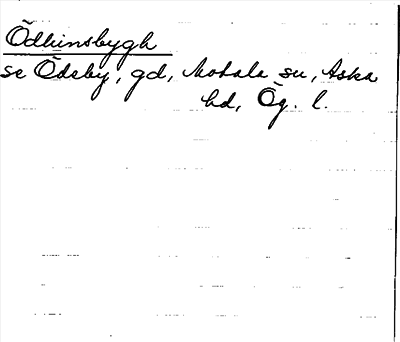 Ödhinsbygh
se Ödeby, gd, Motala sn, Aska
hd, Ög. l.